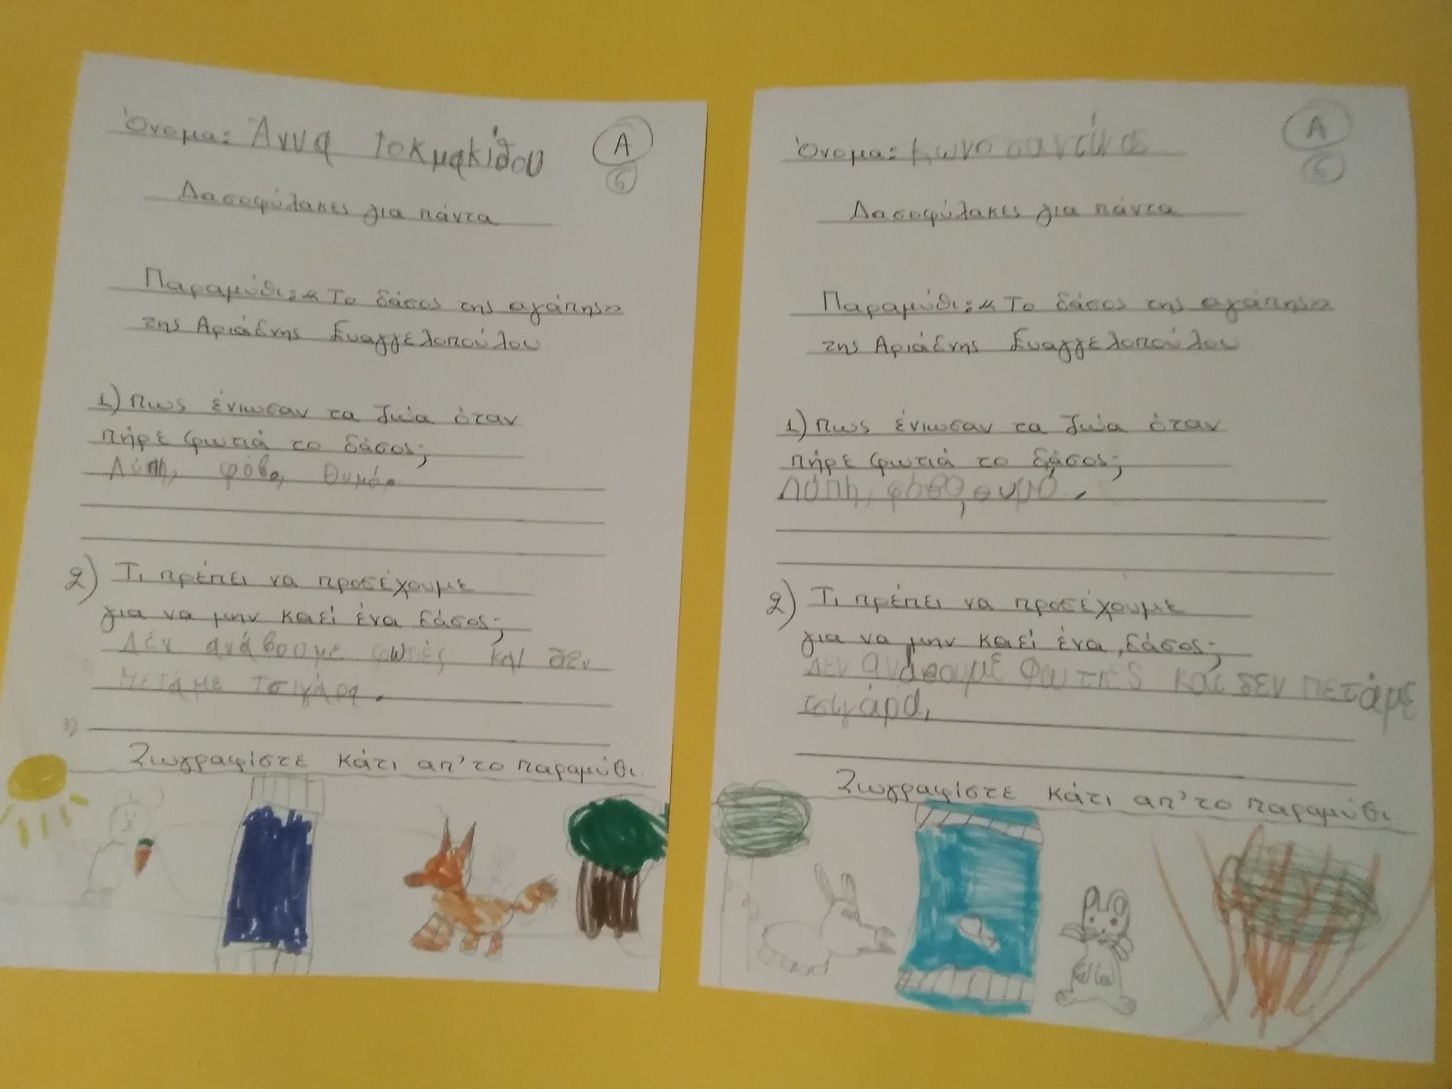 Όνομα: Άννα Τοκμακίδου
Α
6
Δασοφύλακες για πάντα
Παραμύθι: «Το δάσος της αγάπης»
της Αριάδνης Ευαγγελοπούλου
1) Πως ένιωσαν τα ζώα όταν
πήρε φωτιά το δάσος;
Λύπη, φόβο, θυμό.
2) Τι πρέπει να προσέχουμε
για να μην καεί ένα δάσος;
Δέν ανάβουμε φωτιές και δεν
πετάμε τσιγάρα.
3)
Ζωγραφίστε κάτι απ' το παραμύθι.
Όνομα: Κωνσταντίνος
Α
6
Δασοφύλακες για πάντα
Παραμύθι: «Το δάσος της αγάπης»
της Αριάδνης Ευαγγελοπούλου
1) Πως ένιωσαν τα ζώα όταν
πήρε φωτιά το δάσος;
Λύπη, φόβο, θυμό.
2) Τι πρέπει να προσέχουμε
για να μην καεί ένα δάσος;
Δεν ανάβουμε φωτιές και δεν πετάμε
τσιγάρα,
Ζωγραφίστε κάτι απ' το παραμύθι.